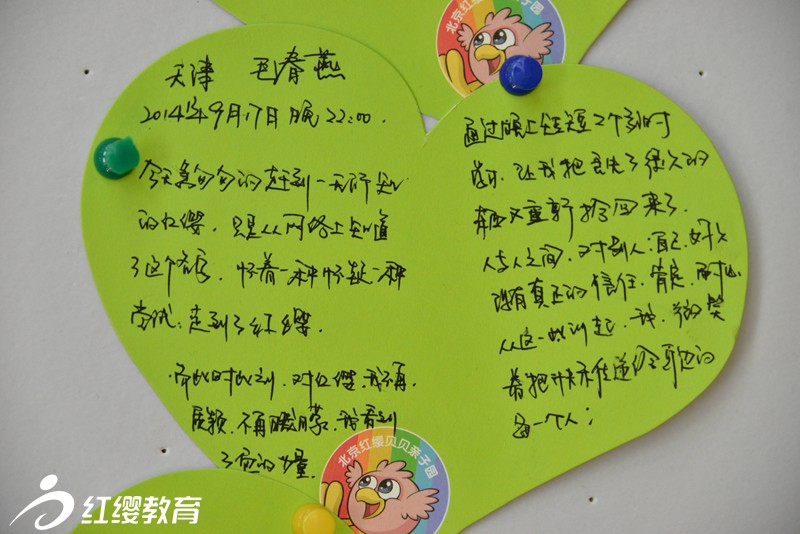 北京红缨贝贝亲子园
天津 毛春燕
2014年9月17日晚22:00.
今天急匆匆的赶到一无所知
的红缨,只是从网络上知道
了这个名字,怀着一种怀疑一种
尝试:走到了红缨.
带此时此刻,对红缨,我不再
质疑,不再朦胧,我看到
了爱的力量.
通过晚上短短2个多小时
学习,让我把丢失了很久的
东西又重新拾回来了.
人与人之间,对别人,自己,好久
没有真正的信任,肯定,
从这一此刻起,我,微笑
着把快乐传递给身边的
每一个人;
北京红缨贝贝亲子园
红缨教育